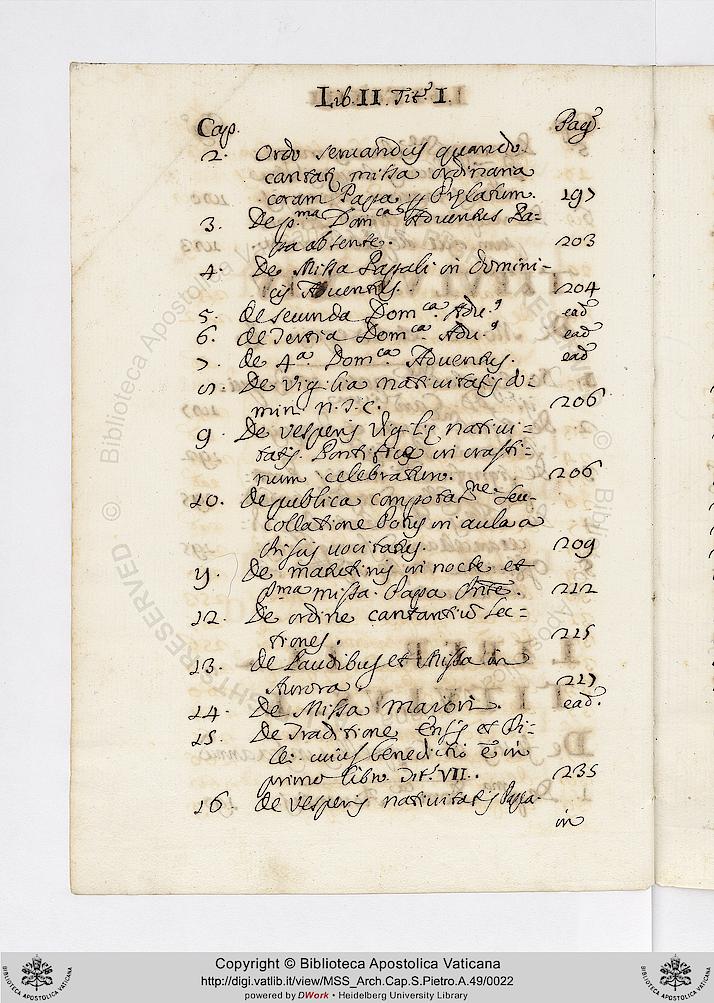 Lib. II. Tit.° I.
Cap. Pag.
2. Ordo servandus quando
cantat missa ordinaria
coram Papa Prelatum. 197
3. De p.ma Dom.ca Adventus Pa=
pa absente. 203
4. De Missa Papali in domini=
cis Adventus. 204
5. de secunda Dom.ca Adu.s ead
6. de Tertia Dom.ca Adu.s ead
7. de 4.a Dom.ca Adventus. ead
8. De vigilia nativitatis do=
mini n. J. C. 206
9. De vesperis vigilię nativi=
tatis. Pontifice in crasti=
num celebraturo. 206
10. de publica seu
collatione Potus in aula a
vocitatis. 209
11. De matutinis in nocte et
p.ma missa. Papa Pñte. 212
12. De ordine cantantiū lec=
tiones. 215
13. de Laudibus et Missa in
Aurora 217
14. De Missa maiori. ead.
15. De Traditione Ensis et Pi=
lei cuius benedictio ē in
primo libro Tit.° VII. 235
16. de vesperis nativitatis Papa
in
© Biblioteca Apostolica Vaticana
RIGHTS RESERVED
Copyright © Biblioteca Apostolica Vaticana
http://digi.vatlib.it/view/MSS_Arch.Cap.S.Pietro.A.49/0022
powered by DWork • Heidelberg University Library